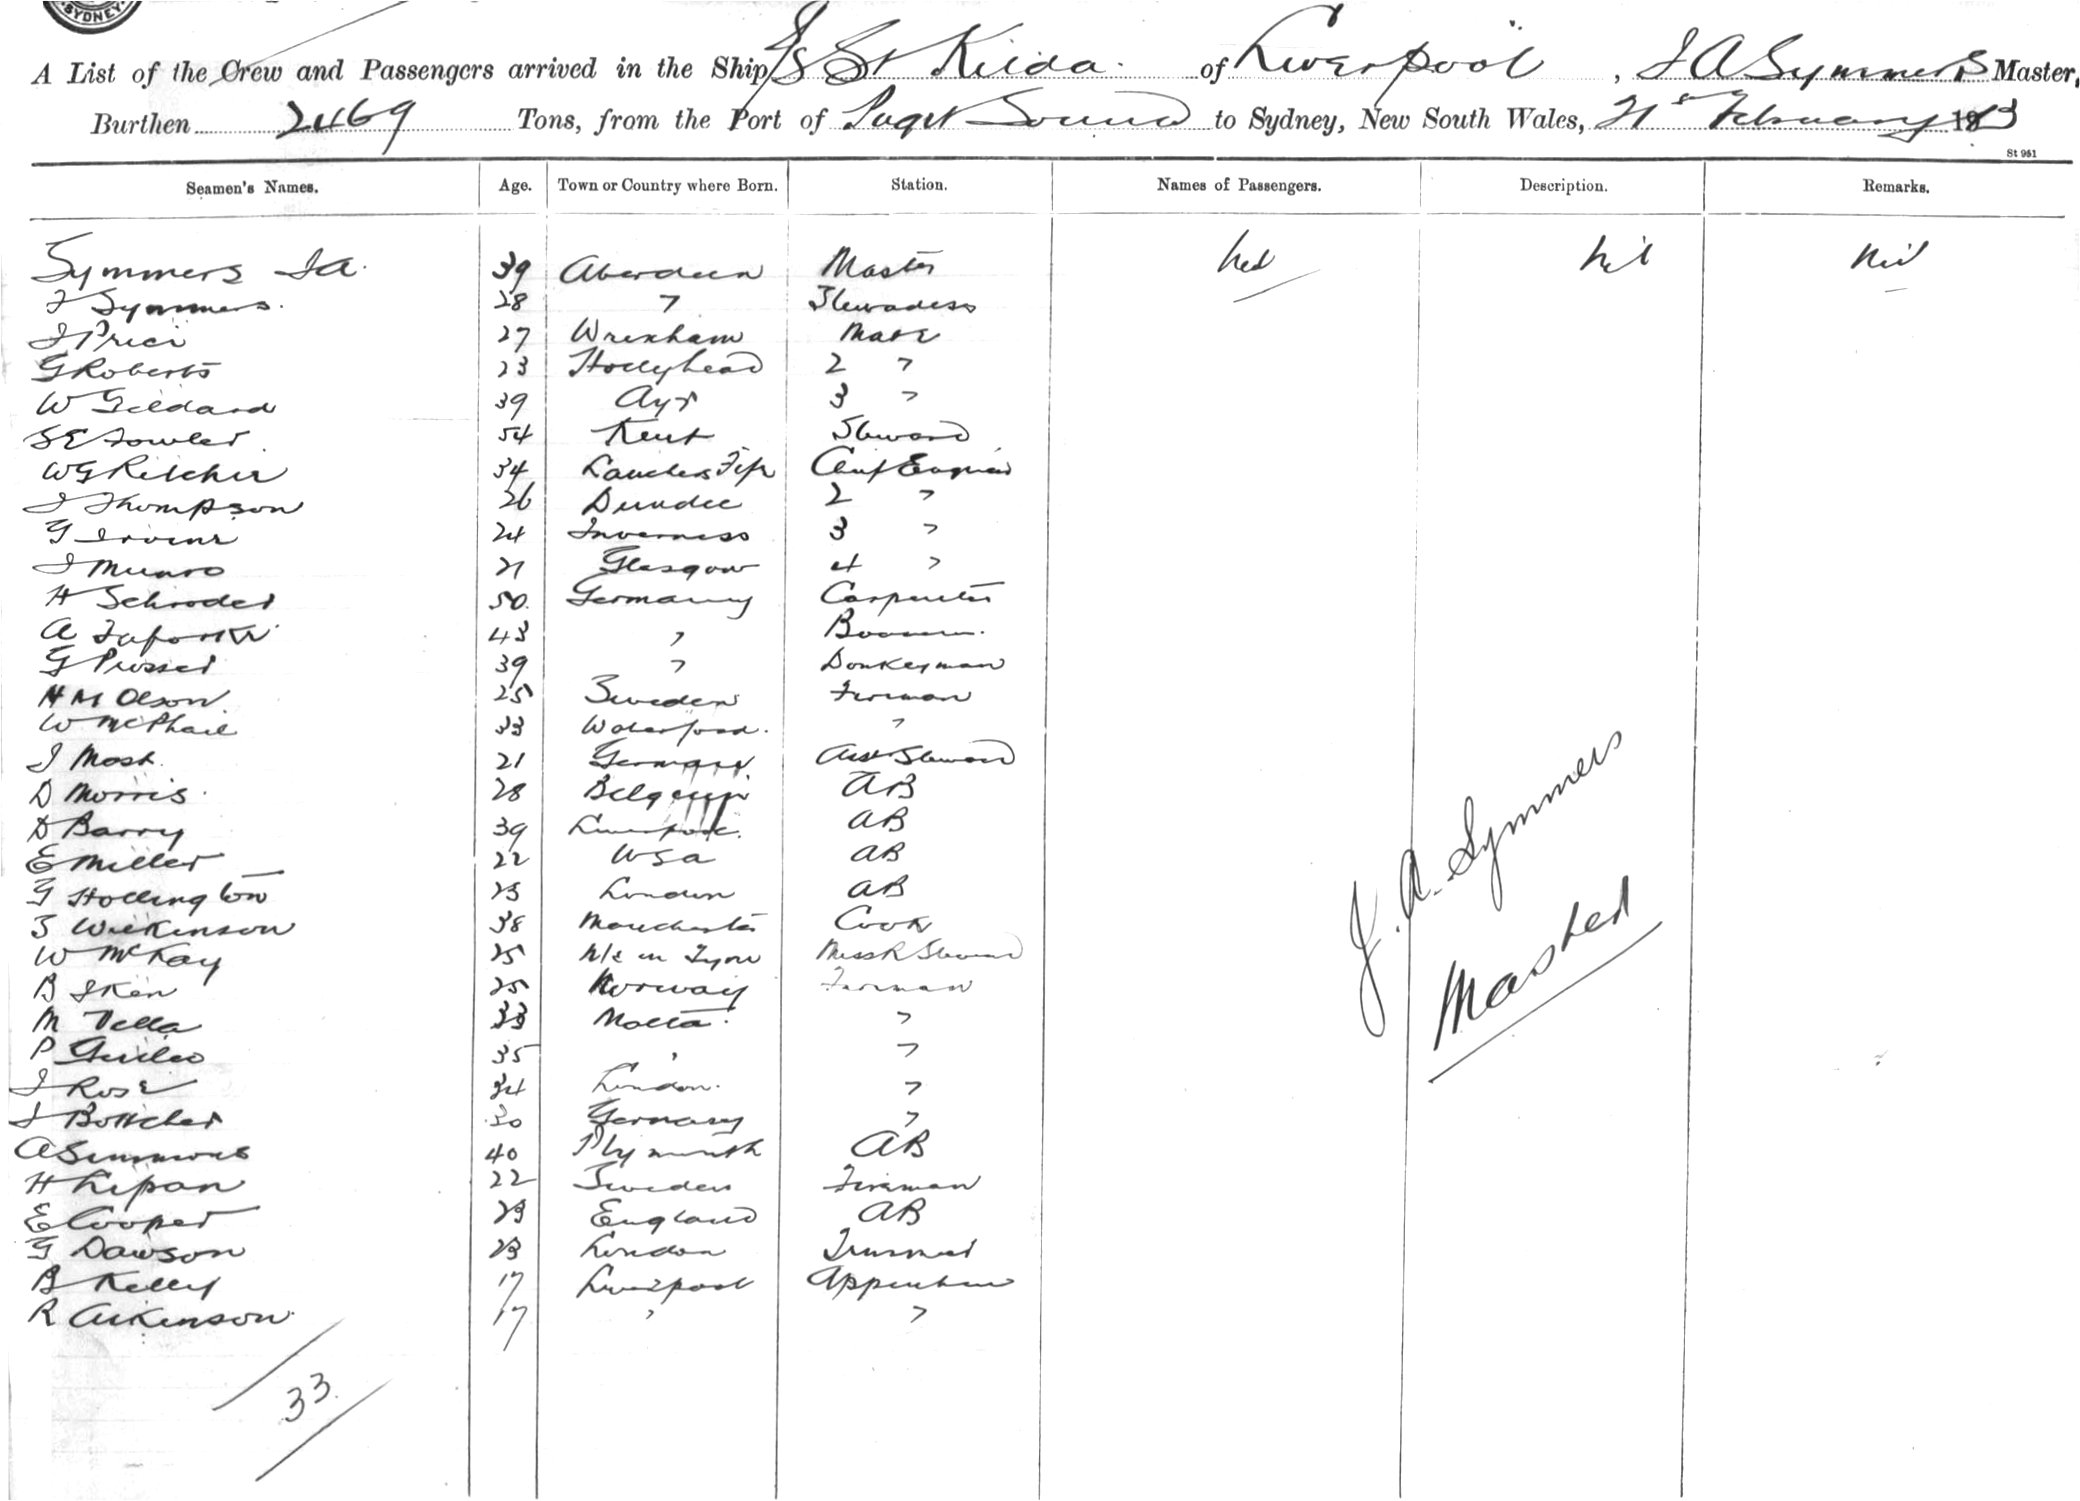 SYDNEY
A List of the Crew and Passengers arrived in the Ship S/S St Kilda of Liverpool, J A Symmers Master,
Burthen 2469 Tons, from the Port of Puget Sound to Sydney, New South Wales, 21st February 1913
St 951
Seamen's Names. Age. Town or Country where Born. Station. Names of Passengers. Description. Remarks.
Symmers J A. 39 Aberdeen Master Nil Nil Nil
J Symmers. 28 " Stewadess
J Price 27 Wrexham Mate
G Roberts 23 Hollyhead 2 "
W Geldard 39 Ayr 3 "
S E Fowler 54 Kent Steward
W G Ritchie 34 Fife Chief Engineer
J Thompson 26 Dundee 2 "
G Irvine 24 Inverness 3 "
J Munro 21 Glasgow 4 "
H Schroder 50 Germany Carpenter
A 43 "
G Prosser 39 " Donkeyman
H M Olson 25 Sweden Fireman
W McPhail 33 Waterford. "
J Mosk 21 Germany Asst Steward
D Morris 28 Belgium AB
D Barry 39 Liverpool. AB
E Miller 22 USA AB
G Hollington 23 London AB
S Wilkinson 38 Manchester Cook
W McKay 25 N/C on Tyne MessR Steward
B Iken 25 Norway Fireman
M Vella 33 Malta. "
P Guileo 35 " "
J Rose 34 London. "
J Bottcher 30 Germany "
A Simmons 40 Plymouth AB
H Lipan 22 Sweden Fireman
E Cooper 23 England AB
G Dawson 23 London Trimmer
B Kelly 17 Liverpool
R Atkinson. 17 " "
33.
J. A. Symmers
Master